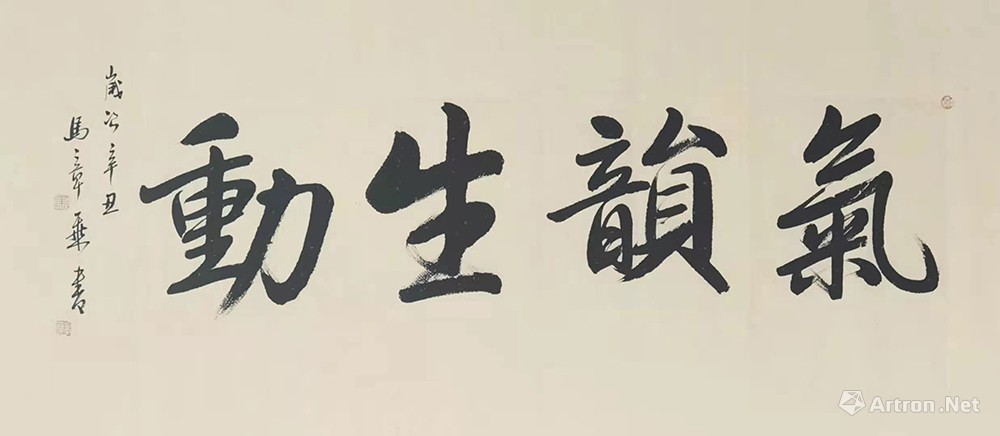 氣韻生動
歲次辛丑
馬章乘書
Artron.Net